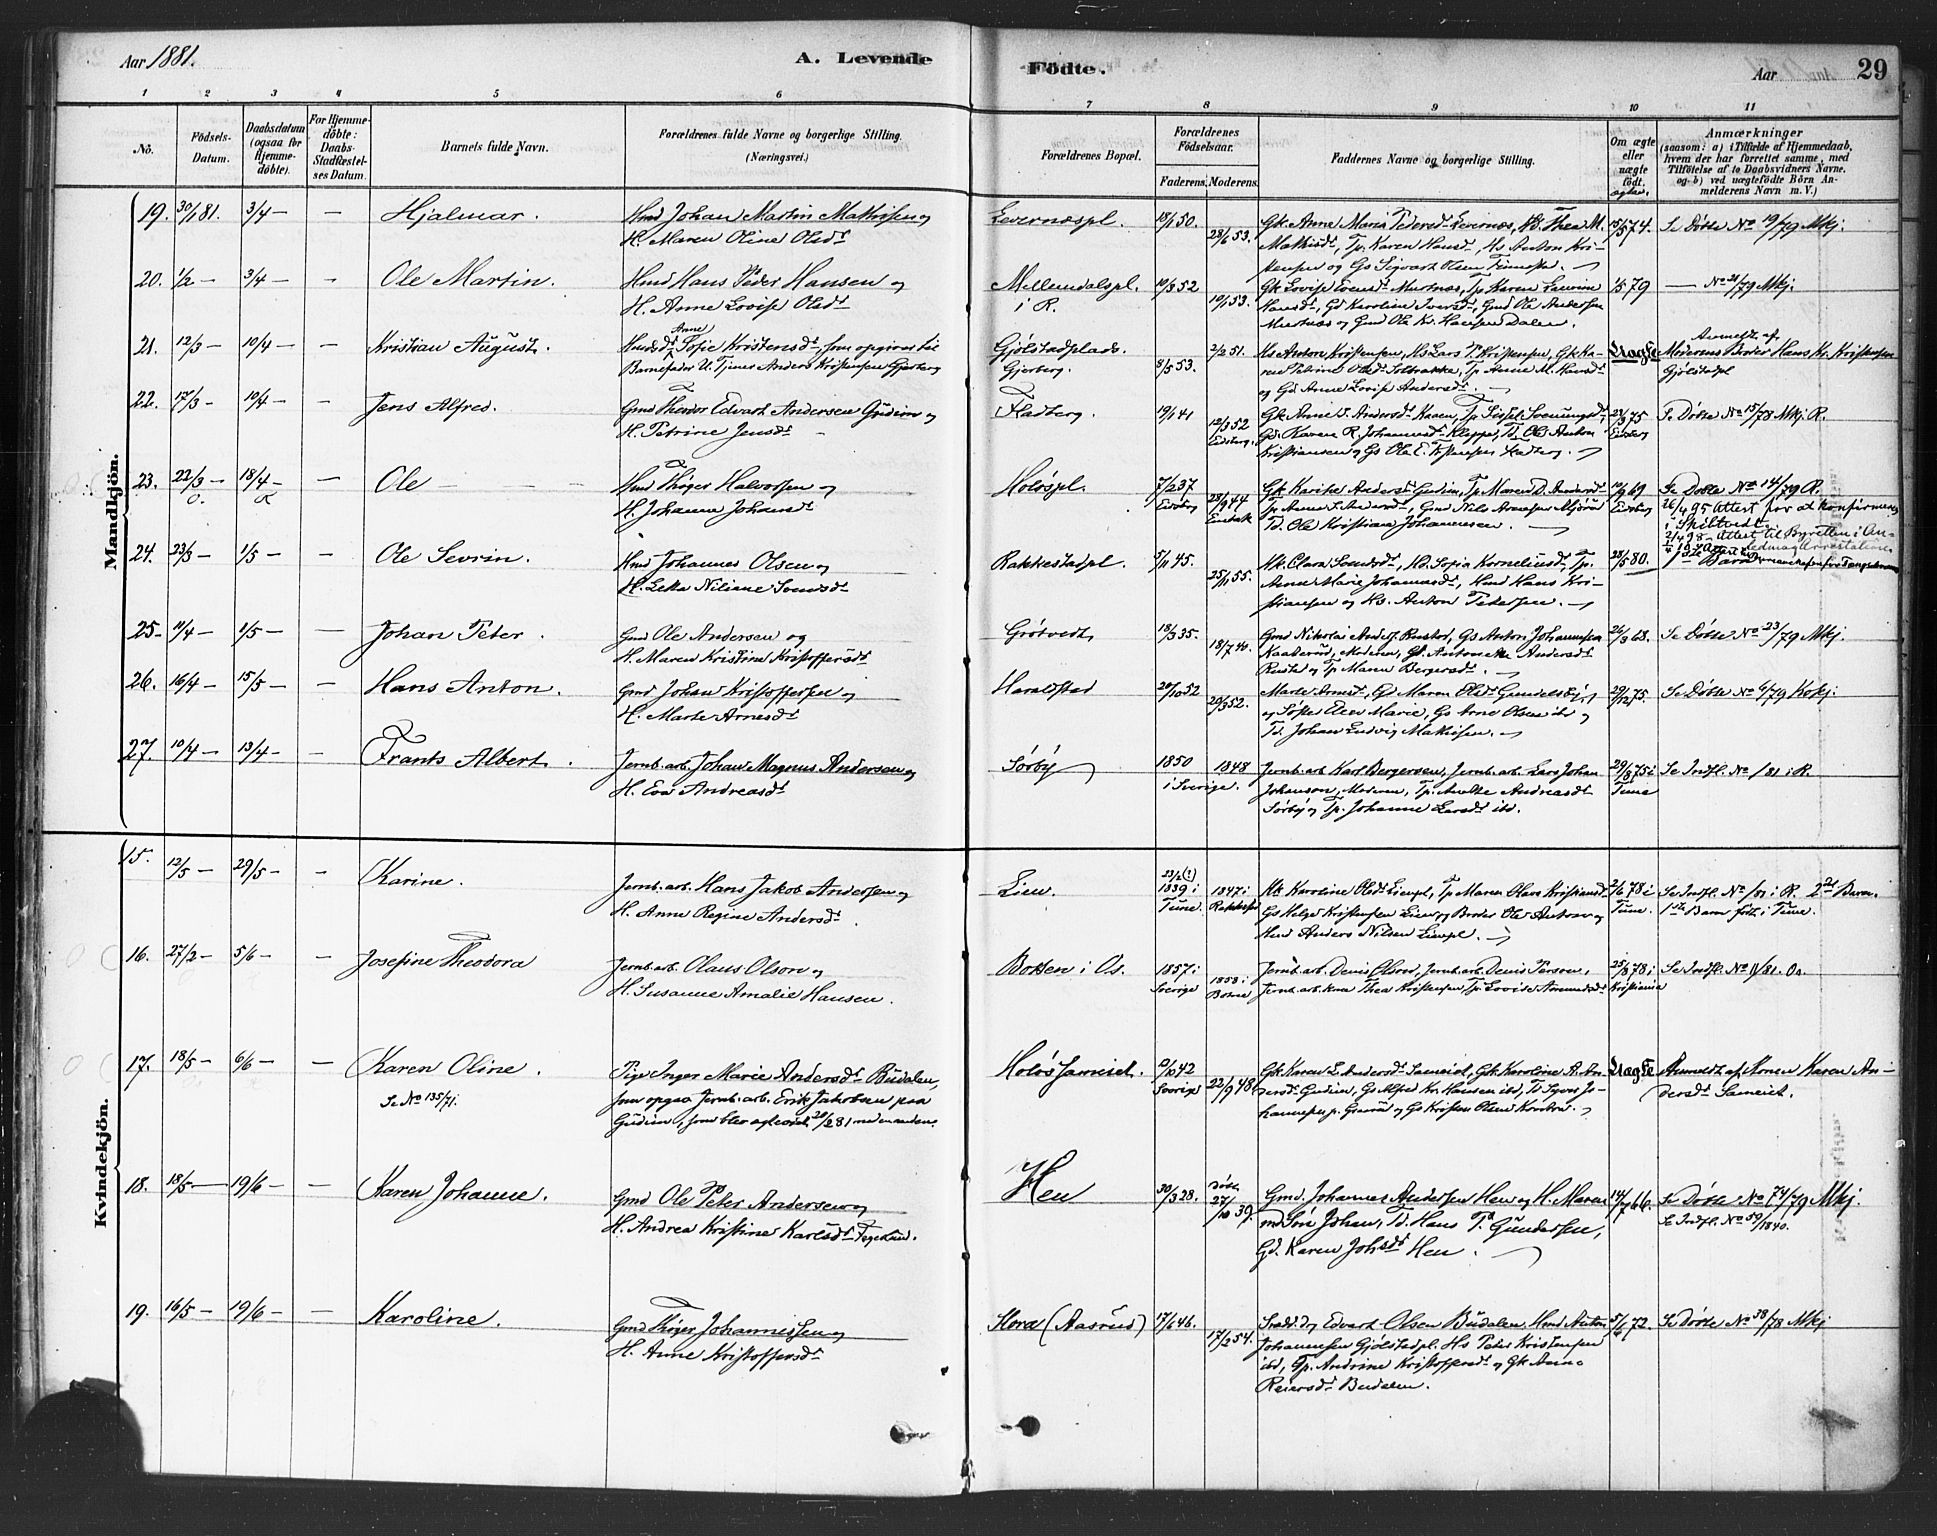 Aar 1881. A. Levende Födte. Aar 29
1 2 3 4 5 6 7 8 9 10 11
No.
Födsels-Datum.
Daabsdatum (ogsaa for Hjemme-döbte).
For Hjemme-döbte: Daabs-Stadfæstel-ses Datum.
Barnets fulde Navn.
Forældrenes fulde Navne og borgerlige Stilling. (Næringsvei.)
Forældrenes Bopæl.
Forældrenes Födselsaar.
Faderens. Moderens.
Faddernes Navne og borgerlige Stilling.
Om ægte eller uægte födt.
Anmærkninger
(saasom: a) i Tilfælde af Hjemmedaab,
hvem der har forrettet samme, med
Tilföielse af to Daabsvidners Navne.
og b) ved uægtefödte Börn An-
melderens Navn m. V.)
Mandkjön.
19. 30/1 81. 3/4 — — Hjalmar.
Hmd Johan Martin Mathisen og
H. Maren Oline Olsdt
Levernæspl. 18/1 50. 28/6 53.
Gk. Anne Maria Pedersdt Levernæs, Hs. Thea M.
Mathisdt, Tp. Karen Hansdt, Hs Anton Kri-
stensen og Gs Sigvart Olsen
15/5 74. Se Döbte No 19/79 Mkj.
20. 1/2 — 3/4 — — Ole Martin.
Hmd Hans Peder Hansen og
H. Anne Lovise Olsdt
Mellemdalspl. i R. 10/3 52 10/1 53.
Gk Lovise Evensdt Murtnæs, Tp Karen Laurine
Hansdt, Gd Karoline Iversdt, Gmd Ole Andersen
Murtnæs og Gmd Ole Kr. Hansen Dalen.
1/5 79 — No 21/79 Mkj.
21. 12/3 — 10/4 — — Kristian August.
Husdsdt Anne Sofie Kristensdt som opgives til
Barnefader U. Tjener Anders Kristensen Gjerberg
Gjölstadplads. Gjerberg. 2/2 51. 8/5 53.
Hs Anton Kristensen, Hs Lars P. Kristensen, Gk Ka-
ren Petrine Olsdt Solbrække, Tp. Anne M. Hansdt
og Gd. Anne Lovise Andersdt.
Uægte Anmeldt af
Moderens Broder Hans Kr. Kristensen
Gjölstadpl
22. 17/3 — 10/4 — — Jens Alfred.
Gmd Theodor Edvart Andersen Gudim og
H. Petrine Jensdt
Fladberg. 19/1 41 12/3 52 Eidsberg.
Gk. Anne S. Andersdt Kaaen, Tp Sissel Svenungsdt,
Gd. Karen R. Johannesdt Kleppe, Td. Ole Anton
Kristiansen og Gs Ole E. Fladberg.
75 Eidsberg Se Döbte No 15/78 Mkj R.
23. 22/3 — 18/4 — — Ole
Hmd Thöger Halvorsen og
H. Johanne Johansdt
Holöspl. 7/2 37 Eidsberg 28/9 44
Gk. Karine Andersdt Gudim, Tp. Maren D. Andersdt
Tp. Anne S. Andersdt, Gmd Nils Arnesen
Td. Ole Kristian Johannesen.
10/9 69 Eidsberg
Se Döbte No 14/79 R.
26/4 95 Attest for at konfirmeres
i Spiltvedt.
2/4 98 Attest til Byretten i
24. 23/3 — 1/5 — — Ole Sevrin.
Hmd Johannes Olsen og
H. Letta Niliane Svensdt
Rakkestadpl. 5/11 45. 25/1 55.
Hk. Clara Svendsdt, Hd. Sofia Korneliusdt, Tp.
Anne Marie Johannesdt, Hmd Hans Kri-
stiansen og Hs. Anton Petersen.
28/5 80. 1ste Barn
25. 11/4 — 1/5 — — Johan Peter.
Gmd Ole Andersen og
H. Maren Kristine Kristoffersdt
Grötvedt 18/3 35. 18/7 40.
Gmd Nikolai Anders. Rustad, Gs Anton Johannesen
Kaaterud, Moderen, Gd. Antonette Andersdt
Rustad og Tp Maren Bergersdt.
26/3 63. Se Döbte No 23/79 Mkj.
26. 16/4 — 15/5 — — Hans Anton.
Gmd Johan Kristoffersen og
H. Marte Arnesdt
Haraldstad 20/10 52 20/3 52.
Marte Arnesdt, Gd Maren Olsdt Gundelsby
og Söster Elen Marie, Gs Arne Olsen ibd og
Td. Johan Ludvig Mathisen.
29/12 75. Se Döbte No 4/79 Kokj.
27. 10/4 — 13/4 — — Frants Albert.
Jernb. arb. Johan Magnus Andersen og
H. Eva Andreasdt
Sörby 1850 i Sverige. 1848
Jernb. arb Karl Bergersen, Jernb. arb. Lars Johan
Johanson, Moderen, Tp. Andreasdt
Sörby og Tp. Johanne Larsdt ibd.
29/8 75 i Tune Se Indfl. No 1/81 i R.
Kvindekjön.
15. 12/5 — 29/5 — — Karine.
Jernb. arb. Hans Jakob Andersen og
H. Anne Regine Andersdt.
Lien. 23/2 (?) 1839 i Tune. 1847 i Rakkestad
Hk Karoline Olsdt Lienpl, Tp Maren Olava Kristiansdt
Gs Helge Kristensen Lien og Broder Ole Anton og
Hmd Anders Nilsen Lienpl.
2/6 78 i Tune. Se Indfl. No 1/81 i R. 2det Barn.
1ste Barn födt i Tune.
16. 27/2 — 5/6 — — Josefine Theodora
Jernb. arb. Olaus Olson og
H. Susanne Amalie Hansen.
Botten i Os. 1857 i Sverige 1858 i
Jernb. arb. Denis Olson, Jernb. arb. Denis Person,
Jernb. arb. kone Thea Kristensen, Tp. Lovise
25/8 78 i Kristiania Se Indfl. No 11/81. Os.
17. 18/5 — 6/6 — — Karen Oline.
Se No 135/71.
Pige Inger Marie Andersdt Budalen,
som opgav Jernb. arb. Erik Jakobsen paa
Gudim, som blev agteviet 20/2 81 med en anden.
Holös Sameiet. 42 Sverige 22/9 48.
Gk. Karen L. Andersdt Sameiet, Gk. Karoline A. An-
dersdt Gudim, Gs. Alfred Kr. Hansen ibd, Td. Syver Jo-
hannesen og Gs Kristen Olsen
Uægte Anmeldt af Konen Karen An-
dersdt Sameiet.
18. 18/5 — 19/6 — — Karen Johanne.
Gmd Ole Peter Andersen og
H. Andrea Kristine Karlsdt
Hen 30/3 28. Döbt 27/10 39.
Gmd. Johannes Andersen Hen og H. Maren
med Sön Johan, Td. Hans P. Gundersen,
Gd. Karen Johsdt Hen.
14/7 66. Se Döbte No 74/79 Mkj.
Se Indfl. No 50/1840.
19. 16/5 — 19/6 — — Karoline.
Gmd Thöger Johannessen og
H. Anne Kristoffersdt
Hora (Aasrud) 17/6 46. 17/2 54.
Edvart Olsen Budalen, Hmd Anton
Johannesen Gjölstadpl. Hs Peter Kristensen
ibd, Tp. Andrine Kristoffersdt og Gk Anne
Reiersdt Budalen.
5/6 72. Se Döbte No 38/78 Mkj